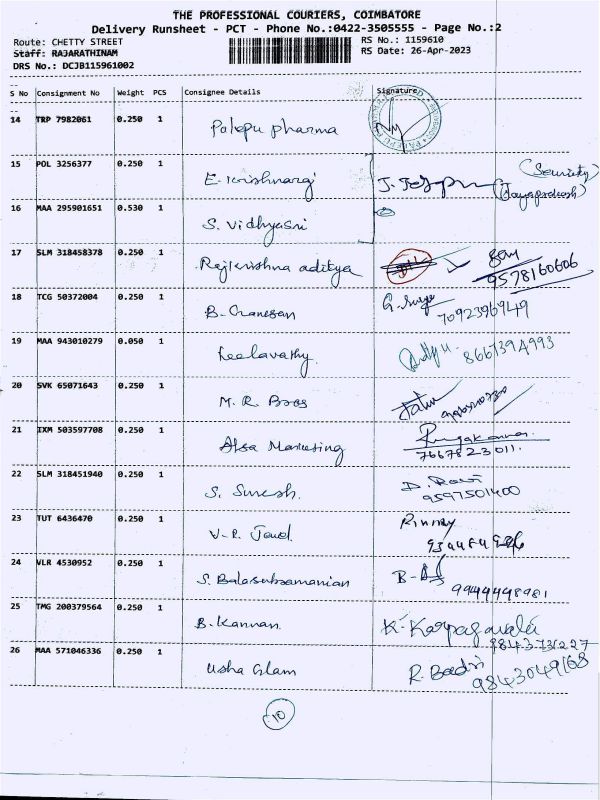 THE PROFESSIONAL COURIERS, COIMBATORE
Delivery Runsheet - PCT - Phone No.:0422-3505555 - Page No.:2
Route: CHETTY STREET RS No.: 1159610
Staff: RAJARATHINAM RS Date: 26-Apr-2023
DRS No.: DCJB115961002
S No Consignment No Weight PCS Consignee Details Signature
14 TRP 7982061 0.250 1 Palepu pharma
15 POL 3256377 0.250 1 (Security)
(Jayaprakash)
16 MAA 295901651 0.530 1 S. Vidhyasri
17 SLM 318458378 0.250 1 Rajkrishna aditya
9578160606
18 TCG 50372004 0.250 1 B. Ganesan
7092396949
19 MAA 943010279 0.050 1 Leelavathy 8667394993
20 SVK 65071643 0.250 1 M. R Boos
21 IXM 503597708 0.250 1 Alsa Marketing
7667823011.
22 SLM 318451940 0.250 1 S. Suresh. D. Ravi
9597501400
23 TUT 6436470 0.250 1
24 VLR 4530952 0.250 1 S. Balasubramanian
9944448981
25 TMG 200379564 0.250 1 B. Kannan K. Karpagavalli
26 MAA 571046336 0.250 1 Usha Glam R. Badri
9843049168
10